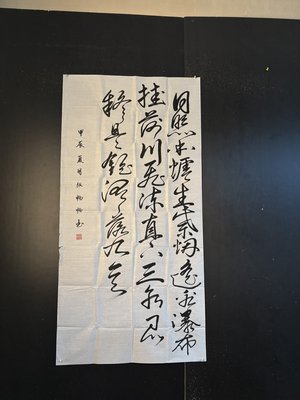 日照香爐生紫烟遥看瀑布
挂前川飛流直下三千尺
疑是銀河落九天
甲辰夏月